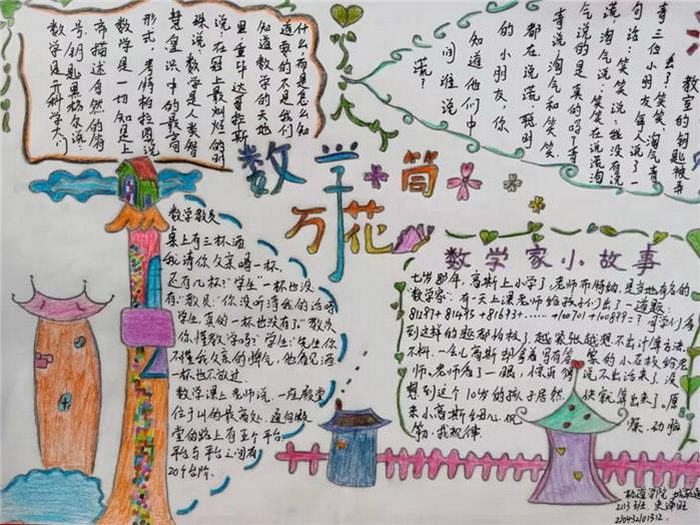 数学万花筒
什么而是怎么知
道重要的不是我们
知道数学的天地
里重毕达哥拉斯
说:在冠上最灿烂的明
珠说:数学是人类智
慧皇识中的最高
形式。考特柏拉图说
数学是一切知识上
帝描述自然的符
号钥匙黑格尔说:
数学是开科学大门
教室的钥匙被弄
丢了,笑笑、淘气、奇
奇三位小朋友每人说了一
句话:笑笑说:我没有说
谎淘气说:笑笑在说谎淘
气说的是真的吗?奇
奇说:淘气和笑笑
都在说谎,聪明
的小朋友,你
知道他们中
间谁说
谎?
数学教灰
桌上有三杯酒
我请你父亲喝一杯,
还有几杯?"学生"一杯也没
有:"教员":你没听清我的话呀
学生:真的一杯也没有了,"教久
你懂数学吗?"学生:先生你
不懂我父亲的脾气,他看见酒
一杯也不放过
数学课上老师说,一座殿堂
位于山的最高处,通向殿
堂的路上有五个平台,
平台与平台之间有
20个台阶.
数学家小故事
七岁那年,高斯上小学了,老师布特纳,是当地有名的
"数学家".有一天上课老师给孩子们出了一道题:
81297+81495+81693+……+100701+100899=?同学们看
到这样的题都怕极了,越紧张越想不出计算方法,
不料,一会儿高斯却拿着写有答案的小石板给老
师,老师看了一眼,惊讶的说不出话来了,没
想到这个10岁的孩子居然快就算出了,原
来小高斯细心,观察,动脑
筋,找规律.